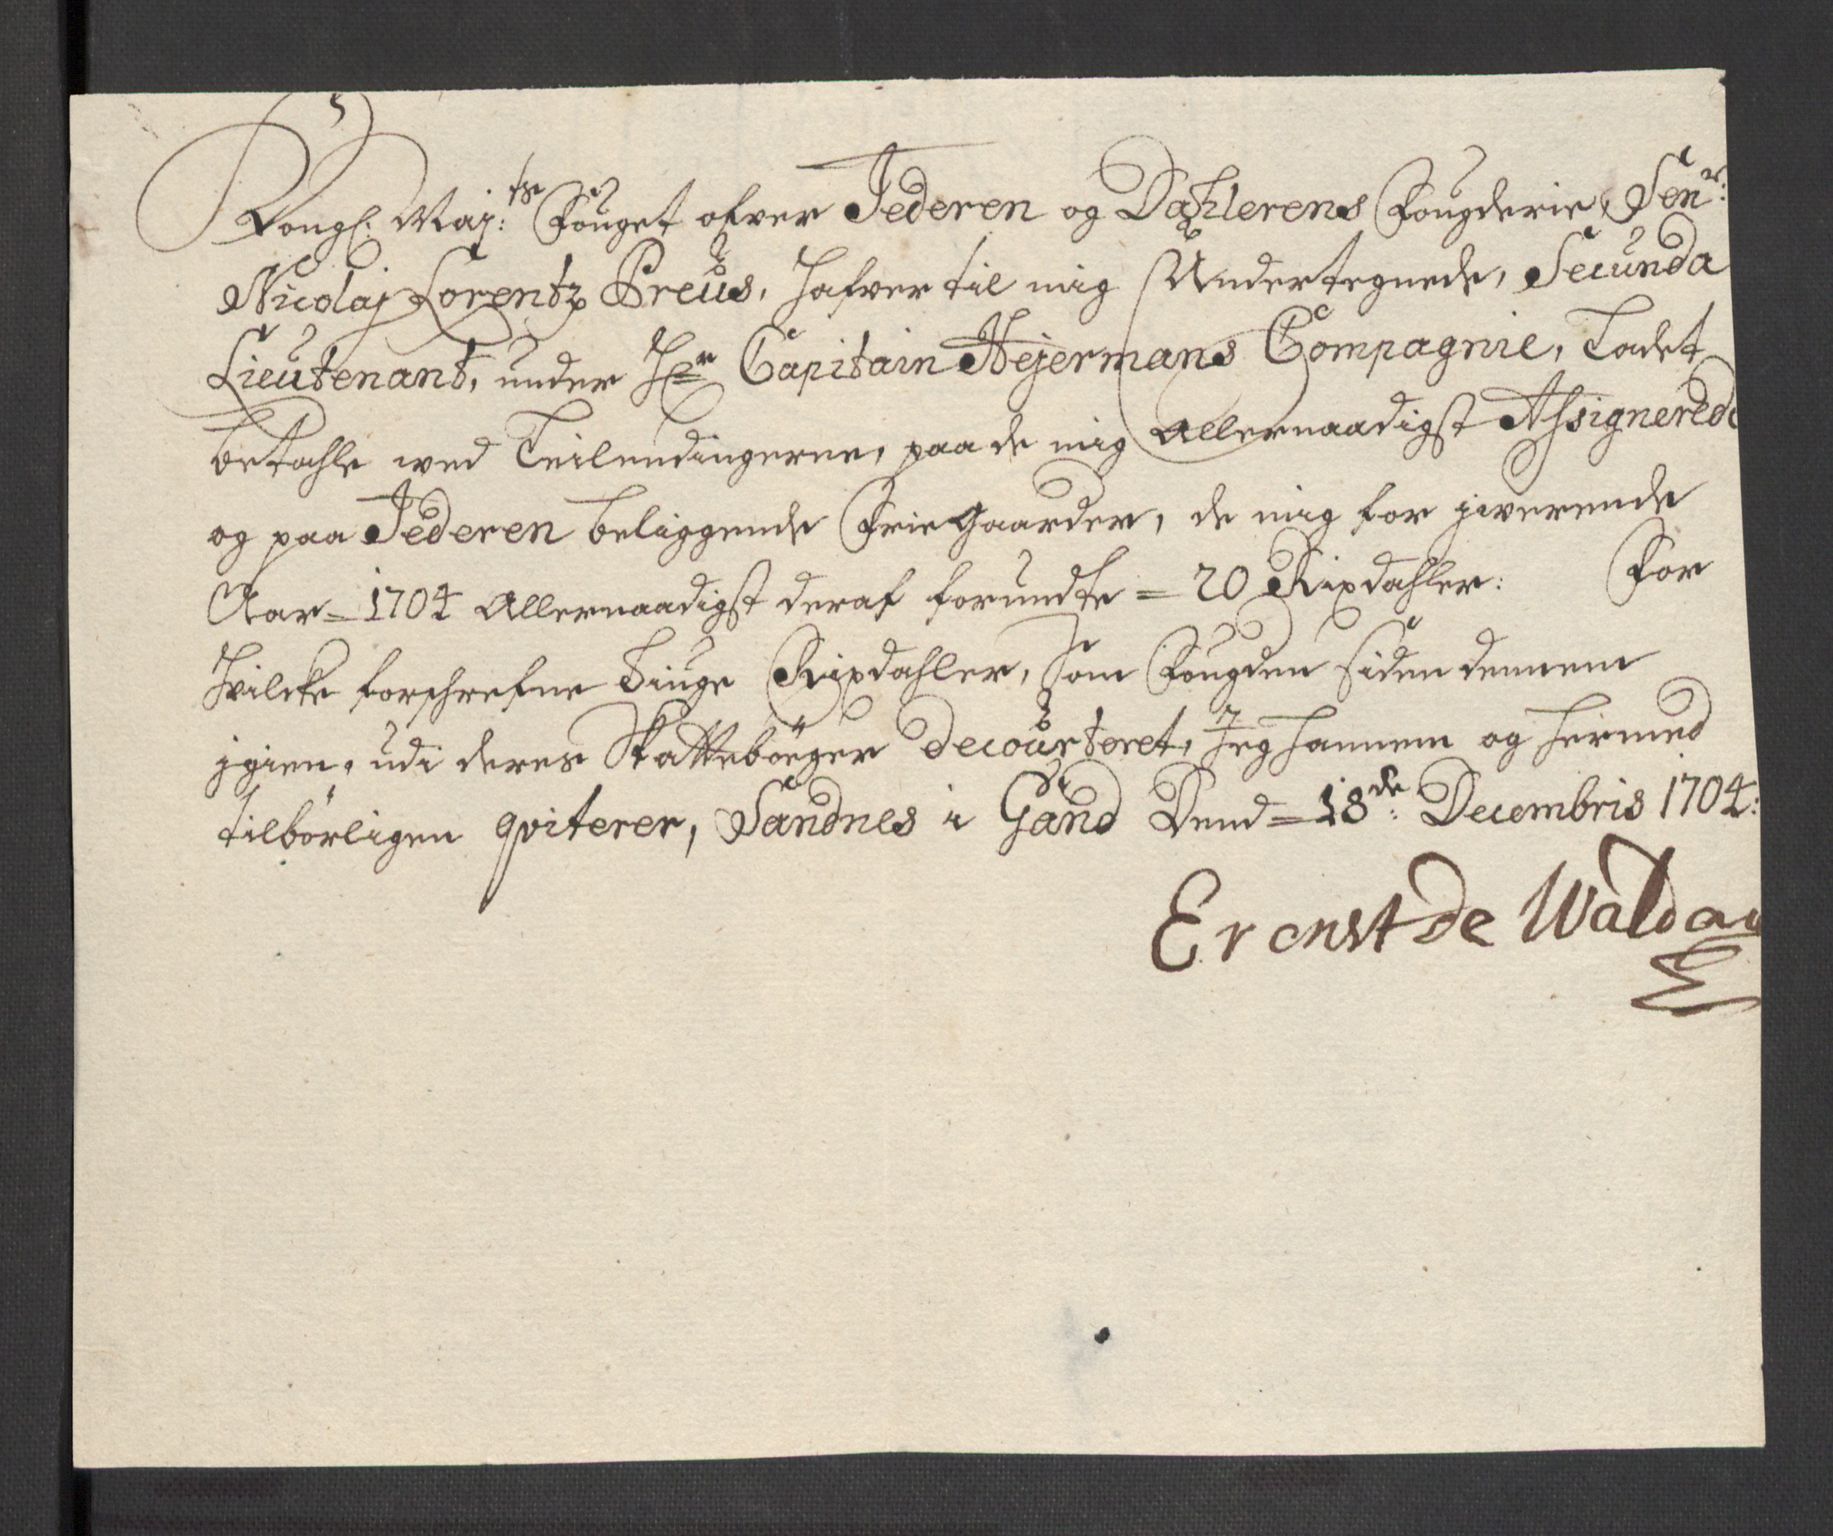 Kongl. Maj:ts Fouget ofver Jederen og Dahlerens Fougderie, Senr:
Nicolaj Lorentz Preus, Hafver til mig Undertegnede, Secunda
Lieutenant, under Hr Capitain Hejermans Compagnie, Ladet
betahle ved Leilendingerne, paa de mig Allernaadigst Assignerede
og paa Jederen beliggende FrieGaarder, de mig for jwerende
Aar = 1704 Allernaadigst deraf forundte = 20 Rixdahler: For
Hvilcke forschrefne Tiuge Rixdahler, som Fougden siden dennem
igien, udi deres Skattebøger decourteret, Jeg hannem og hermed
tilbørligen qviterer, Sandnes i Gand Dend = 18de: Decembris 1704:
Erenst de Waldau